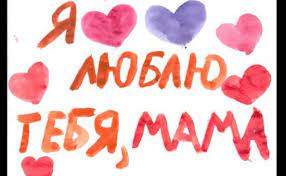 Я
ЛЮБЛЮ
ТЕБЯ, МАМА